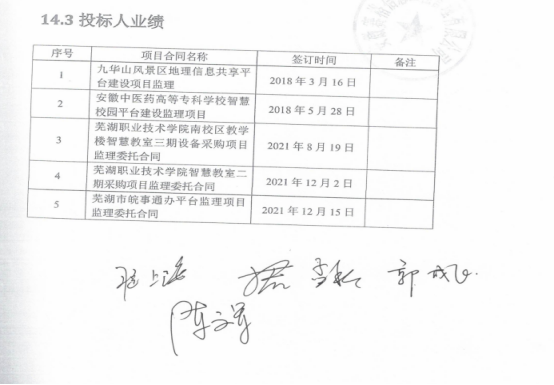 14.3 投标人业绩
序号 项目合同名称 签订时间 备注
1 九华山风景区地理信息共享平
台建设项目监理 2018 年 3 月 16 日
2 安徽中医药高等专科学校智慧
校园平台建设监理项目 2018 年 5 月 28 日
3 芜湖职业技术学院南校区教学
楼智慧教室三期设备采购项目
监理委托合同 2021 年 8 月 19 日
4 芜湖职业技术学院智慧教室二
期采购项目监理委托合同 2021 年 12 月 2 日
5 芜湖市皖事通办平台监理项目
监理委托合同 2021 年 12 月 15 日
郭成飞
陈文军